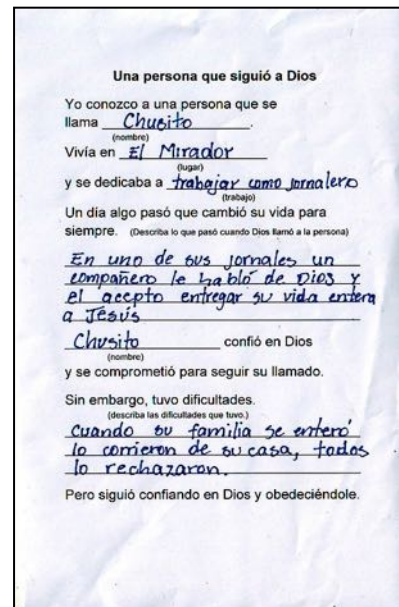 Una persona que siguió a Dios
Yo conozco a una persona que se
llama Chusito.
(nombre)
Vivía en El Mirador
(lugar)
y se dedicaba a trabajar como jornalero
(trabajo)
Un día algo pasó que cambió su vida para
siempre. (Describa lo que pasó cuando Dios llamó a la persona)
En uno de sus jornales un
compañero le habló de Dios y
el acepto entregar su vida entera
a Jesús
Chusito confió en Dios
(nombre)
y se comprometió para seguir su llamado.
Sin embargo, tuvo dificultades.
(describa las dificultades que tuvo.)
Cuando su familia se enteró
lo corrieron de su casa, todos
lo rechazaron.
Pero siguió confiando en Dios y obedeciéndole.